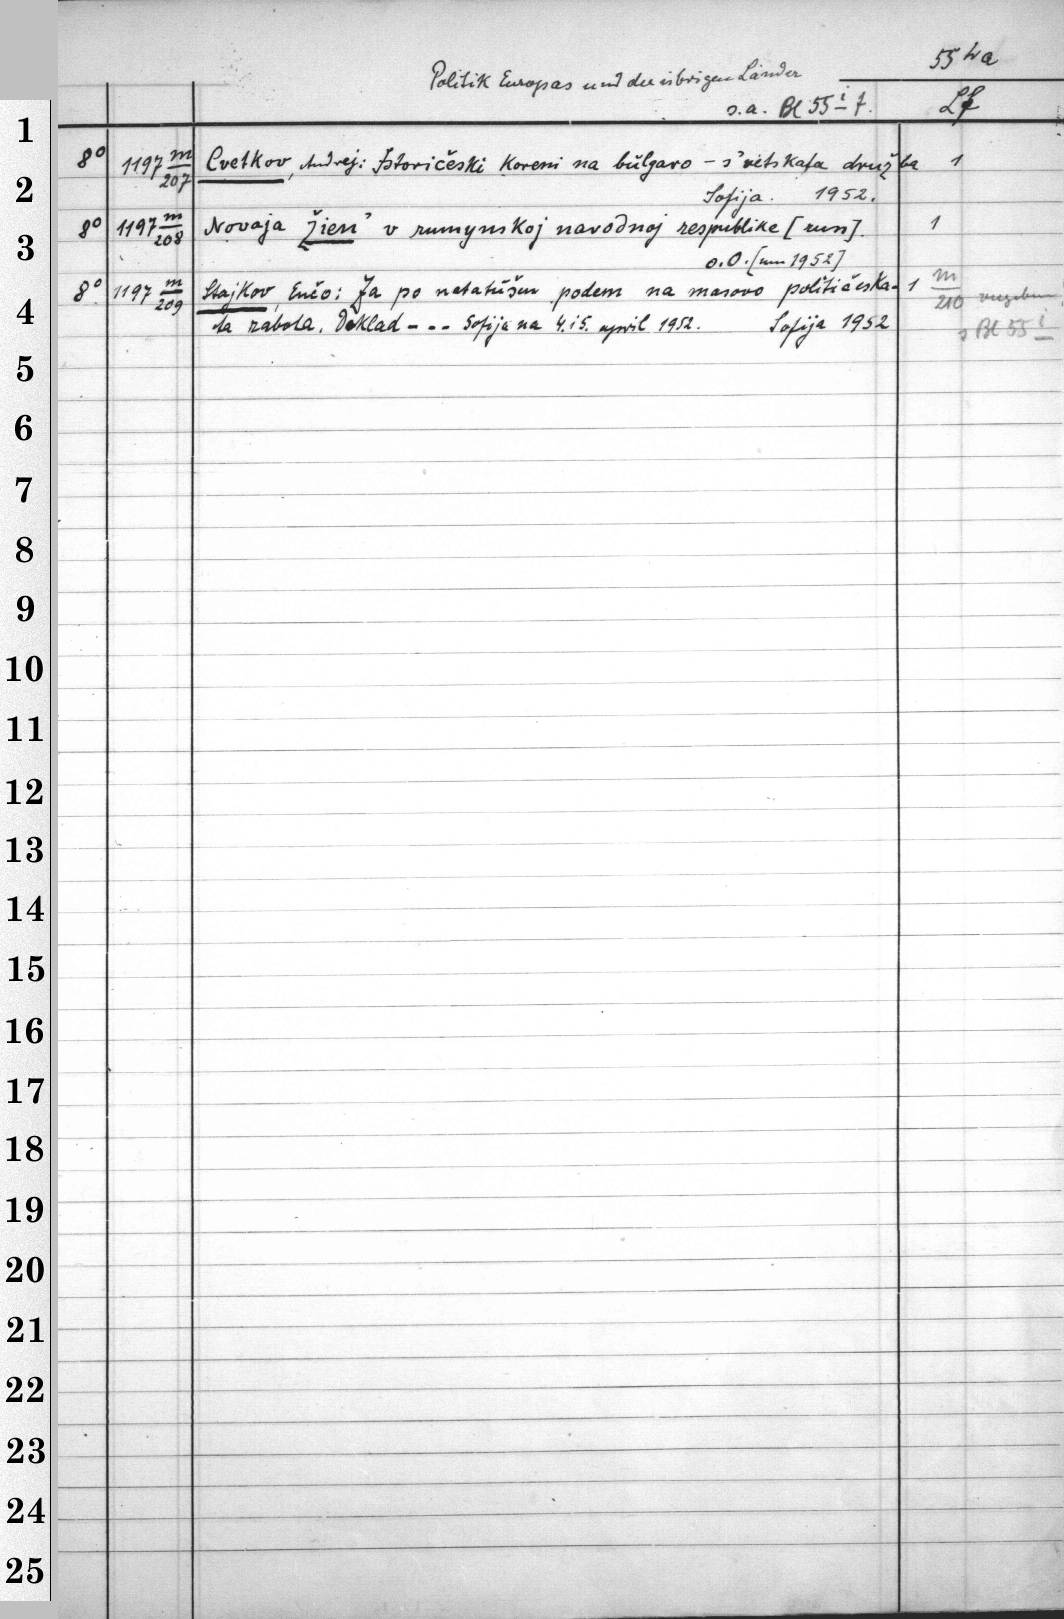 55 ha
Politik Europas und der übrigen Länder
s.a. Bl 55 i 7. Lf
8° 1197 m/207 Cvetkov, Andrej: Istoričeski Koreni na bŭlgaro - s'vetskata družba 1
Sofija. 1952.
8° 1197 m/208 Novaja žizn' v rumynskoj narodnoj respublike [russ]. 1
o.O. [um 1952]
8° 1197 m/209 Stajkov, Enčo: Za po natatŭšen podem na masovo političeska- 1 m/210 vergeben
ta rabota. Doklad - - - Sofija na 4. i 5. april 1952. Sofija 1952 s Bl 55 i
1
2
3
4
5
6
7
8
9
10
11
12
13
14
15
16
17
18
19
20
21
22
23
24
25